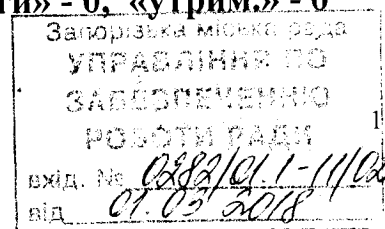 ти» - 0, «утрим.» - 0
Запорізька міська рада
УПРАВЛІННЯ ПО
ЗАБЕЗПЕЧЕННЮ
РОБОТИ РАДИ
1
вхід. № 0282/01.1-11/02
від 01.03 2018